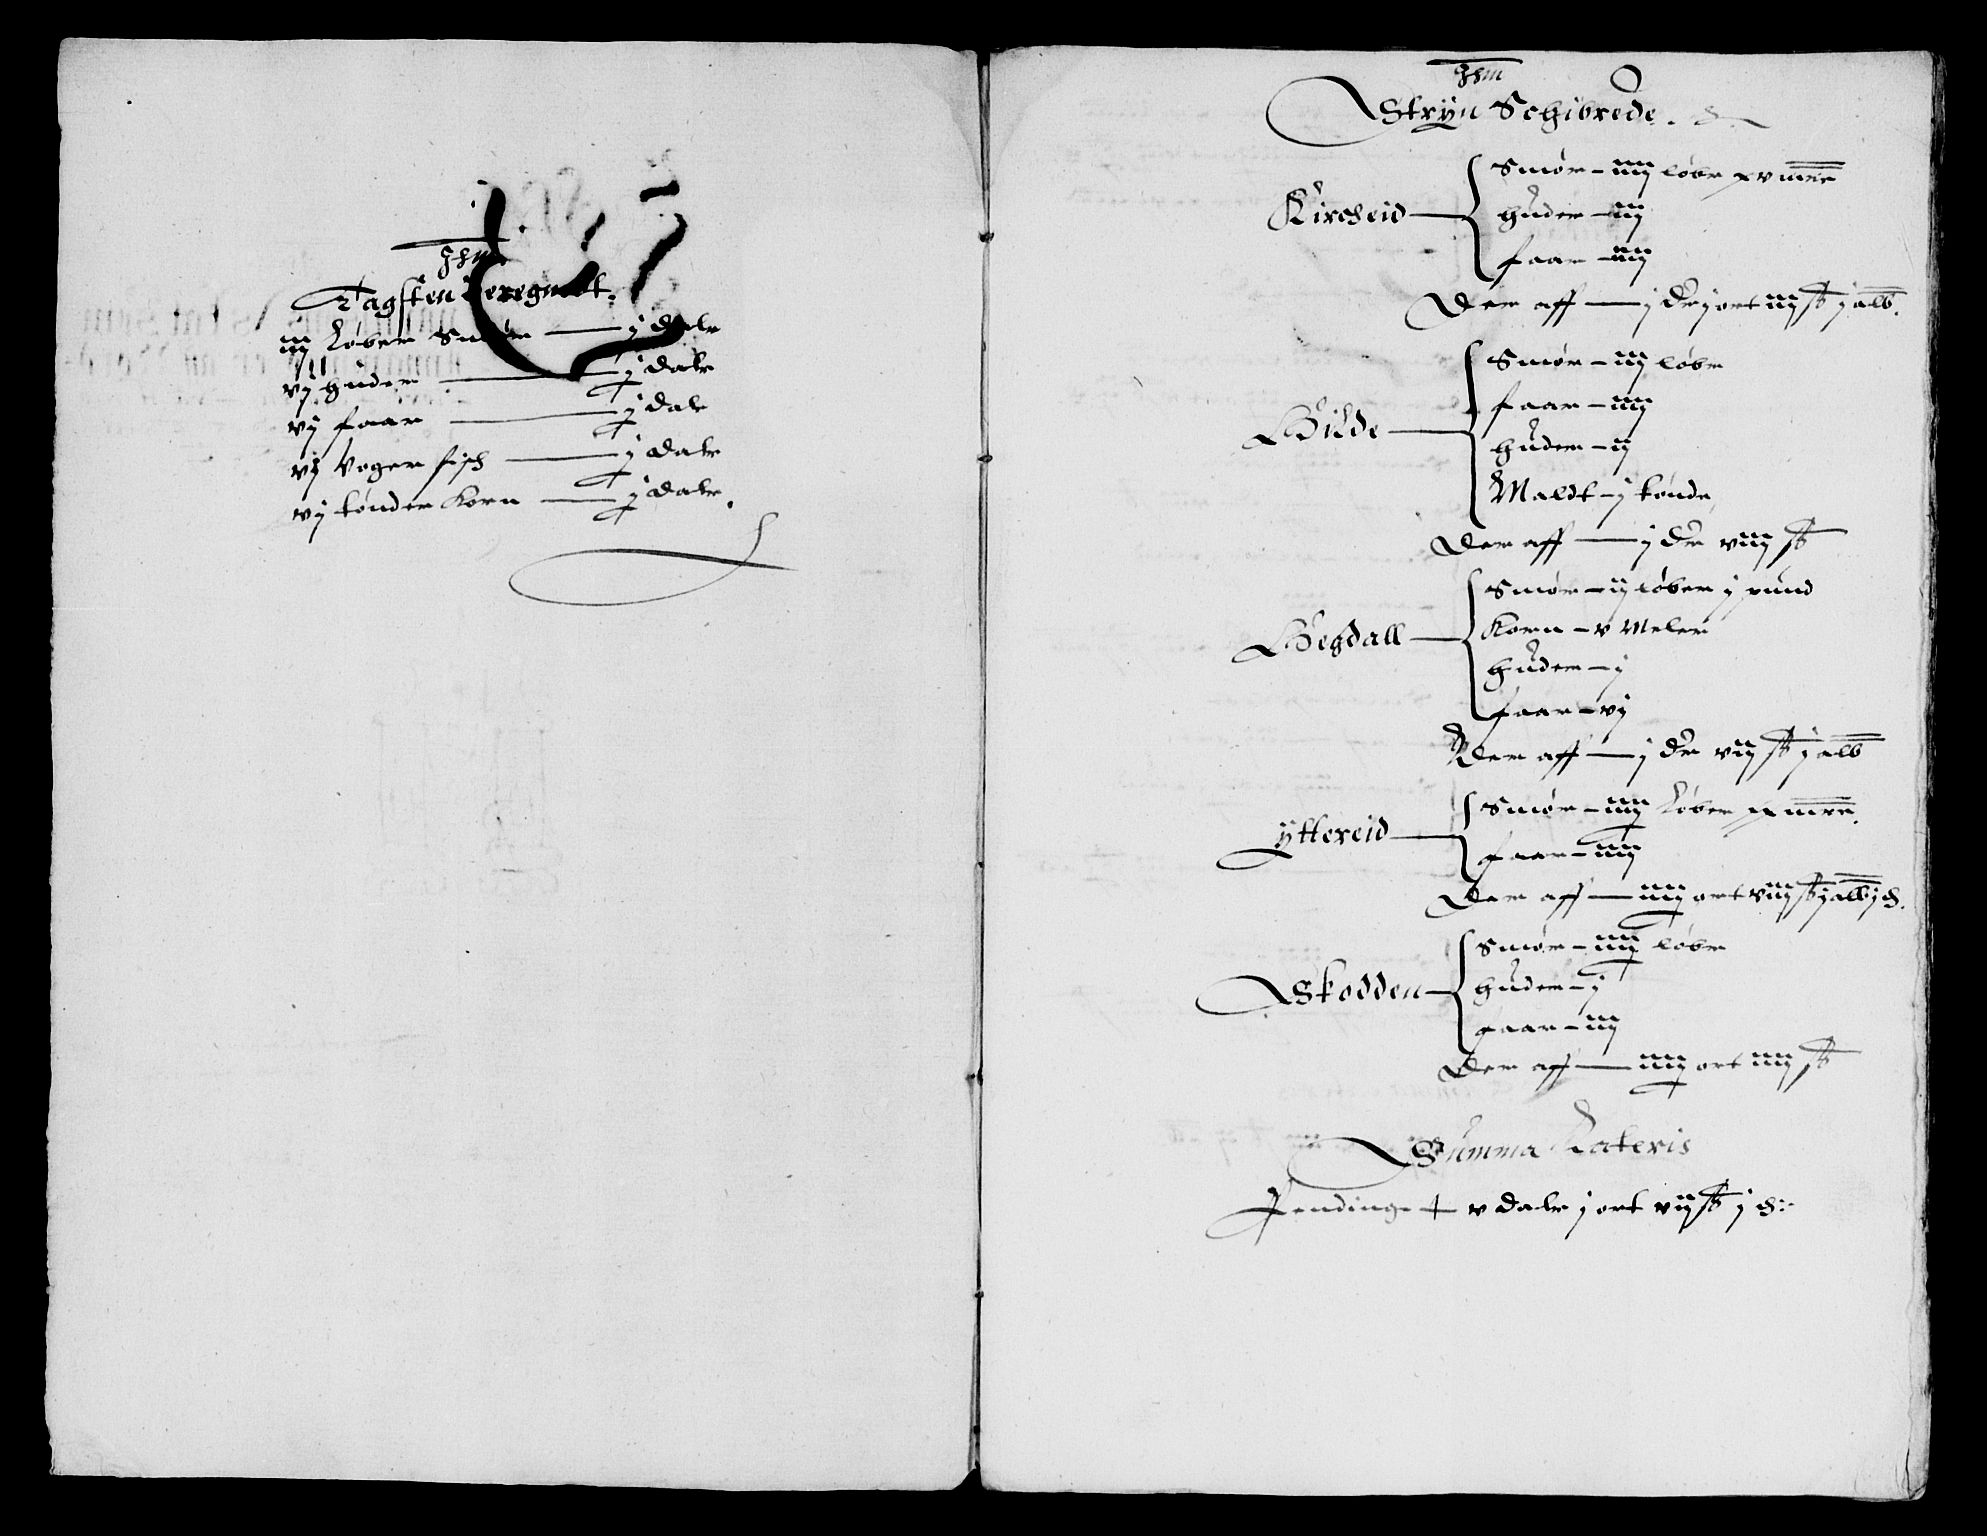 Jhm
Tagsten Beregnett.
iij Løber Smør — j dalr
vj huder — j dalr
vj faar — j dalr
vj Voger fisch — j dalr
vj tønder Korn — j dalr.
Jhm
Strÿn Schibrede.
Kircheid
Smør - iiij løbr xv mrr
huder - iij
faar - iiij
Der aff — j dlr j ort iiij ß j alb.
Hilde
Smør - iij løbr
faar - iiij
huder - ij
Maldt - j tønde
Der aff — j dlr viij ß
Hegdall
Smør - ij løber j pund
Korn - v Meler
huder - j
faar - vj
Der aff — j dlr vij ß j alb
ÿttereid
Smør - iiij Løber x mrr.
faar - iiij
Der aff — iiij ort viij ß j alb j ₰.
Skodden
Smør - iiij løbr
huder - j
faar - iij
Der aff — iiij ort iiij ß
Summa Lateris
Pendinge + v dalr j ort vij ß j ₰.